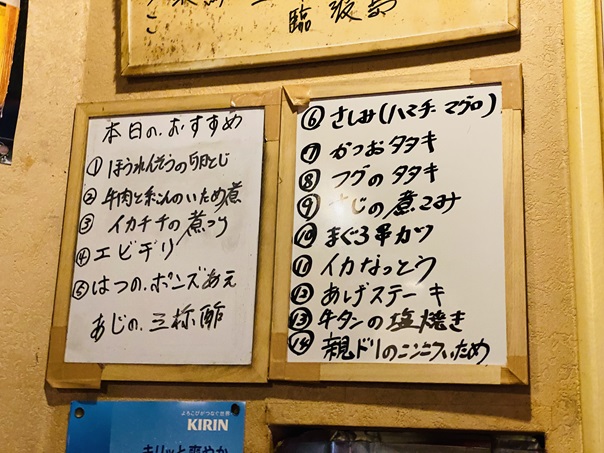 臨
本日の.おすすめ
① ほうれんそうの卵とじ
② 牛肉と糸こんのいため煮
③ イカゲソの煮つけ
④ エビチリ
⑤ はつの.ポンズあえ
あじの.三杯酢
⑥ さしみ(ハマチ マグロ)
⑦ かつおタタキ
⑧ フグのタタキ
⑨ の煮こみ
⑩ まぐろ串カツ
⑪ イカなっとう
⑫ あげステーキ
⑬ 牛タンの塩焼き
⑭ 親ドリのニンニクいため
よろこびがつなぐ世界へ
KIRIN
キリッと爽やか